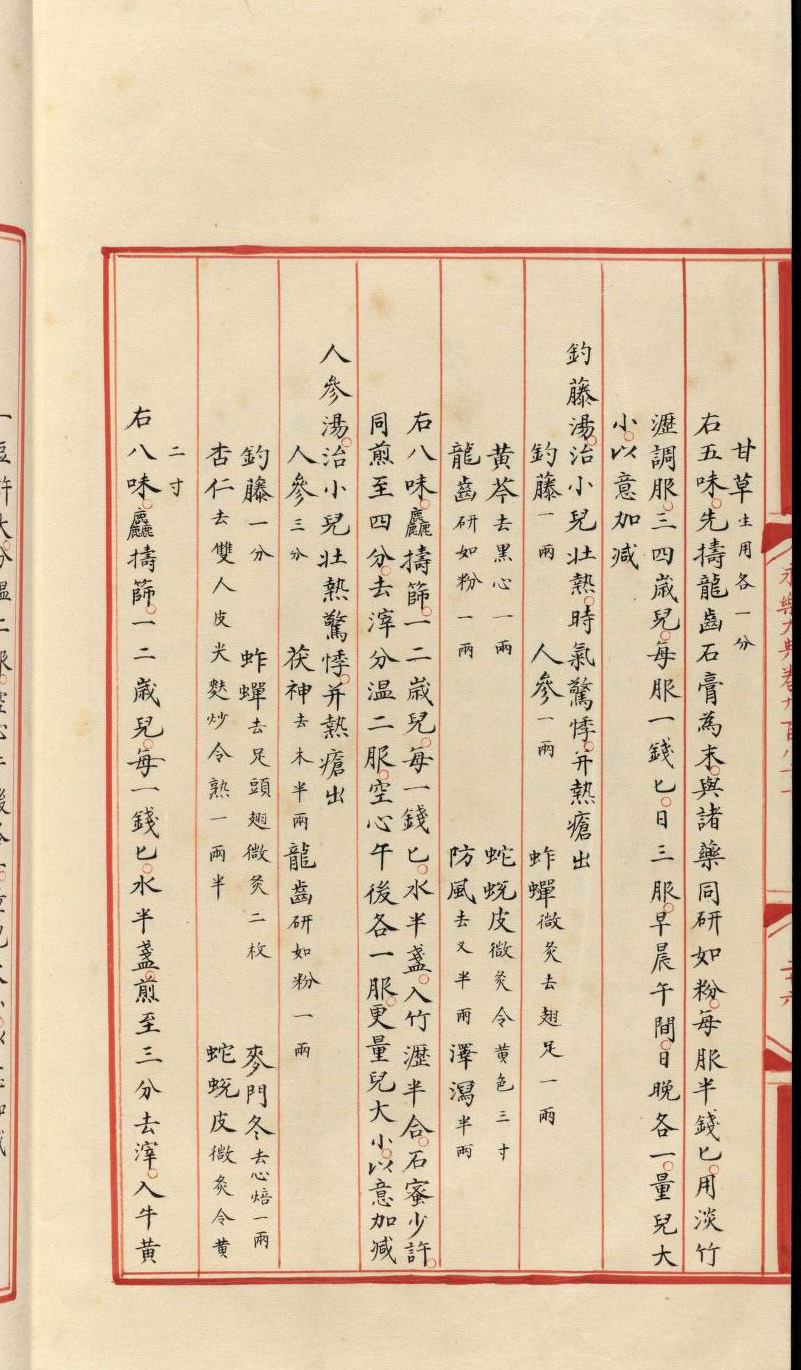 甘草生用各一分
右五味。先擣龍齒石膏為末。與諸藥同研如粉。每服半錢匕。用淡竹
瀝調服。三四歲兒。每服一錢匕。日三服。早晨午間。日晚各一。量兒大
小。以意加減
釣藤湯。治小兒壯熱。時氣驚悸。并熱瘡出
釣藤一兩 人參一兩 蚱蟬微炙去翅足一兩
黃芩去黑心一兩 蛇蛻皮微炙令黃色三寸
龍齒研如粉一兩 防風去叉半兩 澤瀉半兩
右八味。麤擣篩。一二歲兒。每一錢匕。水半盞。入竹瀝半合。石蜜少許。
同煎至四分。去滓分溫二服。空心午後各一服。更量兒大小。以意加減
人參湯。治小兒壯熱驚悸。并熱瘡出
人參三分 茯神去木半兩 龍齒研如粉一兩
釣藤一分 蚱蟬去足頭翅微炙二枚 麥門冬去心焙一兩
杏仁去雙人皮尖麩炒令熟一兩半 蛇蛻皮微炙令黃
二寸
右八味。麤擣篩。一二歲兒。每一錢匕。水半盞。煎至三分去滓。入牛黃